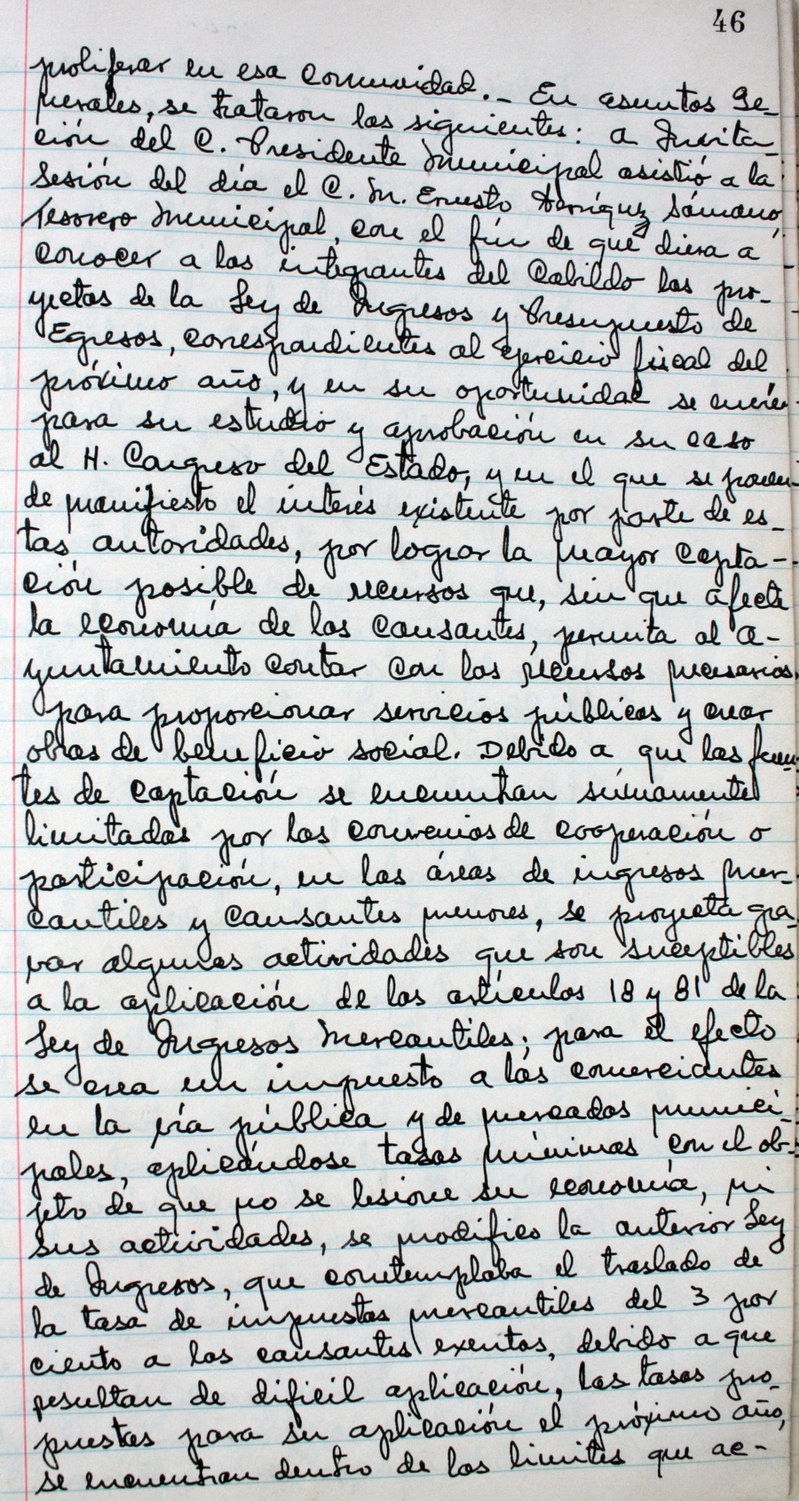 46
proliferar en esa comunidad.- En asuntos Ge-
nerales, se trataron los siguientes: a Invita-
ción del C. Presidente Municipal asistió a la
sesión del día el C. M. Ernesto Sámano,
Tesorero Municipal, con el fin de que diera a
conocer a los integrantes del Cabildo los pro-
yectos de la Ley de Ingresos y Presupuesto de
Egresos, correspondientes al ejercicio fiscal del
próximo año, y en su oportunidad se envíen
para su estudio y aprobación en su caso
al H. Congreso del Estado, y en el que se ponen
de manifiesto el interés existente por parte de es-
tas autoridades, por lograr la mayor capta-
ción posible de recursos que, sin que afecte
la economía de los causantes, permita al A-
yuntamiento contar con los recursos necesarios
para proporcionar servicios públicos y crear
obras de beneficio social. Debido a que las fuen-
tes de captación se encuentran súmamente
limitadas por los convenios de cooperación o
participación, en las áreas de ingresos mer-
cantiles y causantes menores, se proyecta gra-
var algunas actividades que son suceptibles
a la aplicación de los artículos 18 y 81 de la
Ley de Ingresos Mercantiles; para el efecto
se crea un impuesto a los comerciantes
en la vía pública y de mercados munici-
pales, aplicándose tasas mínimas con el ob-
jeto de que no se lesione su economía, ni
sus actividades, se modifico la anterior Ley
de Ingresos, que contemplaba el traslado de
la tasa de impuestos mercantiles del 3 por
ciento a los causantes exentos, debido a que
resultan de dificil aplicación, las tasas pro-
puestas para su aplicación el próximo año,
se encuentran dentro de los limites que ac-